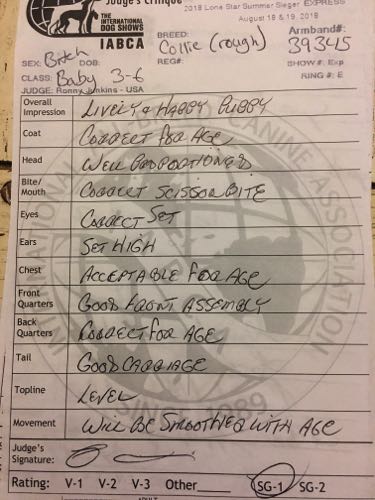 Judge's Critique
2018 Lone Star Summer Sieger EXPRESS
August 18 & 19, 2018
THE
INTERNATIONAL
DOG SHOWS
IABCA
BREED: Collie (rough)
Armband#: 39345
SEX: Bitch DOB: REG#: SHOW #: Exp
CLASS: Baby 3-6 RING #: E
JUDGE: Ronny Junkins - USA
Overall Impression LIVELY & HAPPY PUPPY
Coat CORRECT FOR AGE
Head WELL PROPORTIONED
Bite/Mouth CORRECT SCISSOR BITE
Eyes CORRECT SET
Ears SET HIGH
Chest ACCEPTABLE FOR AGE
Front Quarters GOOD FRONT ASSEMBLY
Back Quarters CORRECT FOR AGE
Tail GOOD CARRIAGE
Topline LEVEL
Movement WILL BE SMOOTHER WITH AGE
Judge's Signature:
Rating: V-1 V-2 V-3 Other SG-1 SG-2